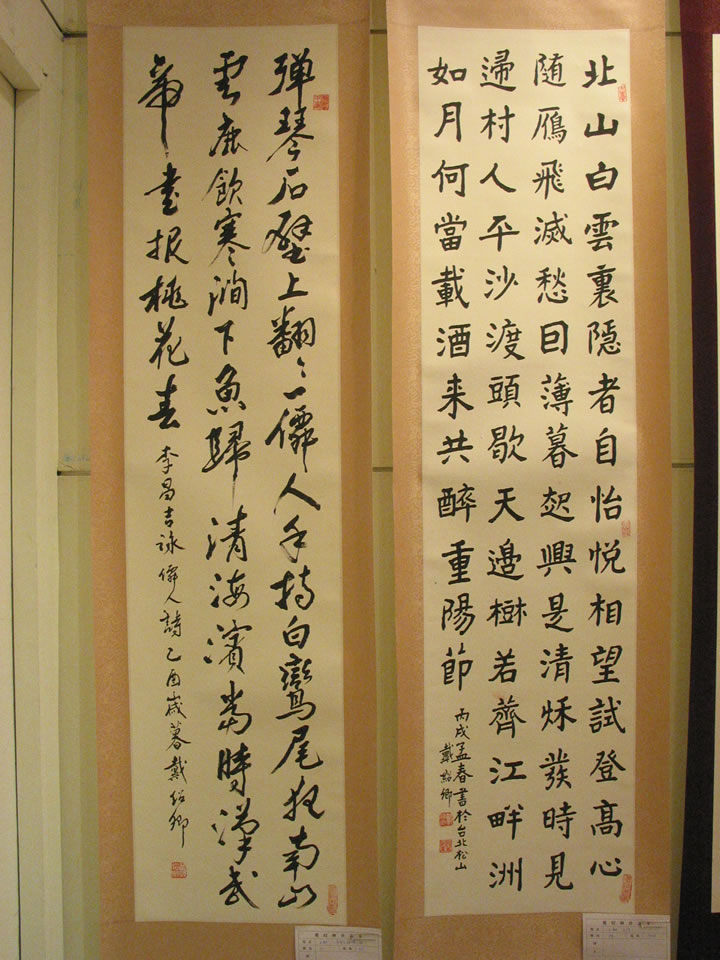 北山白雲裏隱者自怡悅相望試登高心
随鴈飛滅愁因薄暮起興是清秋發時見
歸村人平沙渡頭歇天邊樹若薺江畔洲
如月何當載酒来共醉重陽節
丙戌孟春書於台北松山
戴紹卿
弹琴石壁上翻〻一僊人手持白鸞尾夜南山
雲鹿飲寒澗下魚歸清海濱當時漢武
帝書报桃花春
李昌吉詠僊人詩乙酉歲暮戴紹卿